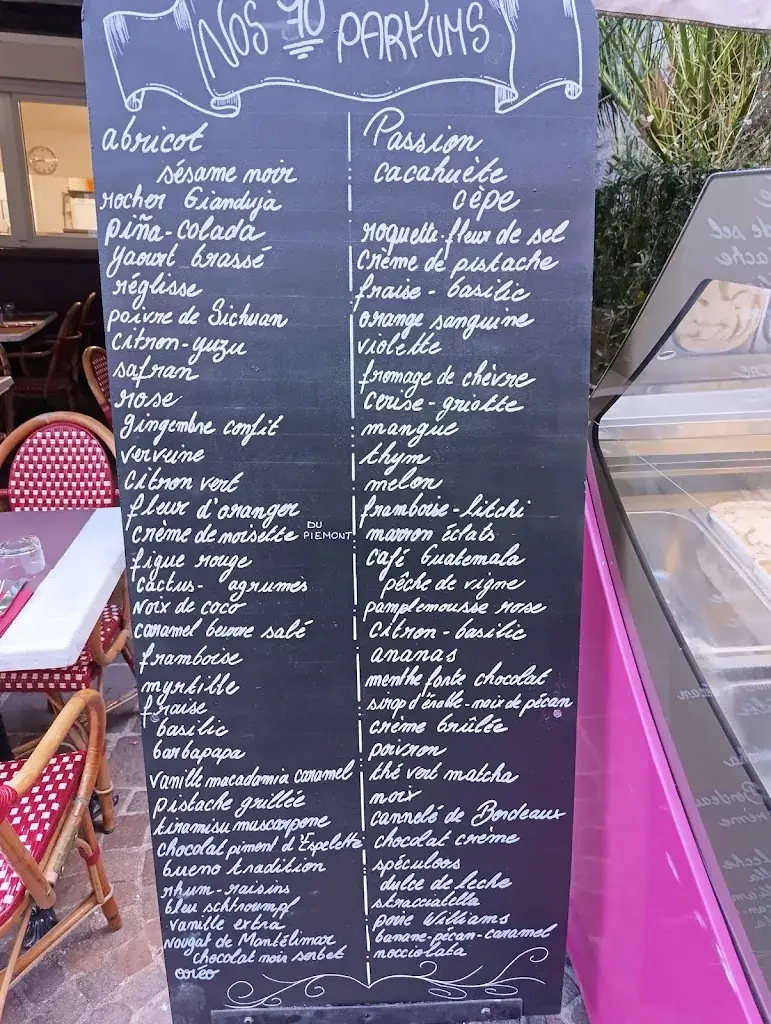 Nos 70 PARFUMS
abricot
sésame noir
rocher Gianduja
piña-colada
yaourt brassé
réglisse
poivre de Sichuan
citron-yuzu
safran
rose
gingembre confit
verveine
citron vert
fleur d'oranger
crème de noisette DU PIEMONT
figue rouge
cactus- agrumes
noix de coco
caramel beurre salé
framboise
myrtille
fraise
basilic
barbapapa
vanille macadamia caramel
pistache grillée
tiramisu mascarpone
chocolat piment d'Espelette
bueno tradition
rhum-raisins
bleu schtroumpf
vanille extra
nougat de Montélimar
chocolat noir sorbet
oréo
Passion
cacahuète
cèpe
roquette-fleur de sel
crème de pistache
fraise - basilic
orange sanguine
violette
fromage de chèvre
cerise-griotte
mangue
thym
melon
framboise-litchi
marron éclats
café Guatemala
pêche de vigne
pamplemousse rose
citron-basilic
ananas
menthe forte chocolat
sirop d'érable-noix de pécan
crème brûlée
poivron
thé vert matcha
noix
cannelé de Bordeaux
chocolat crème
spéculoos
dulce de leche
stracciatella
poire Williams
banane-pécan-caramel
nocciolata